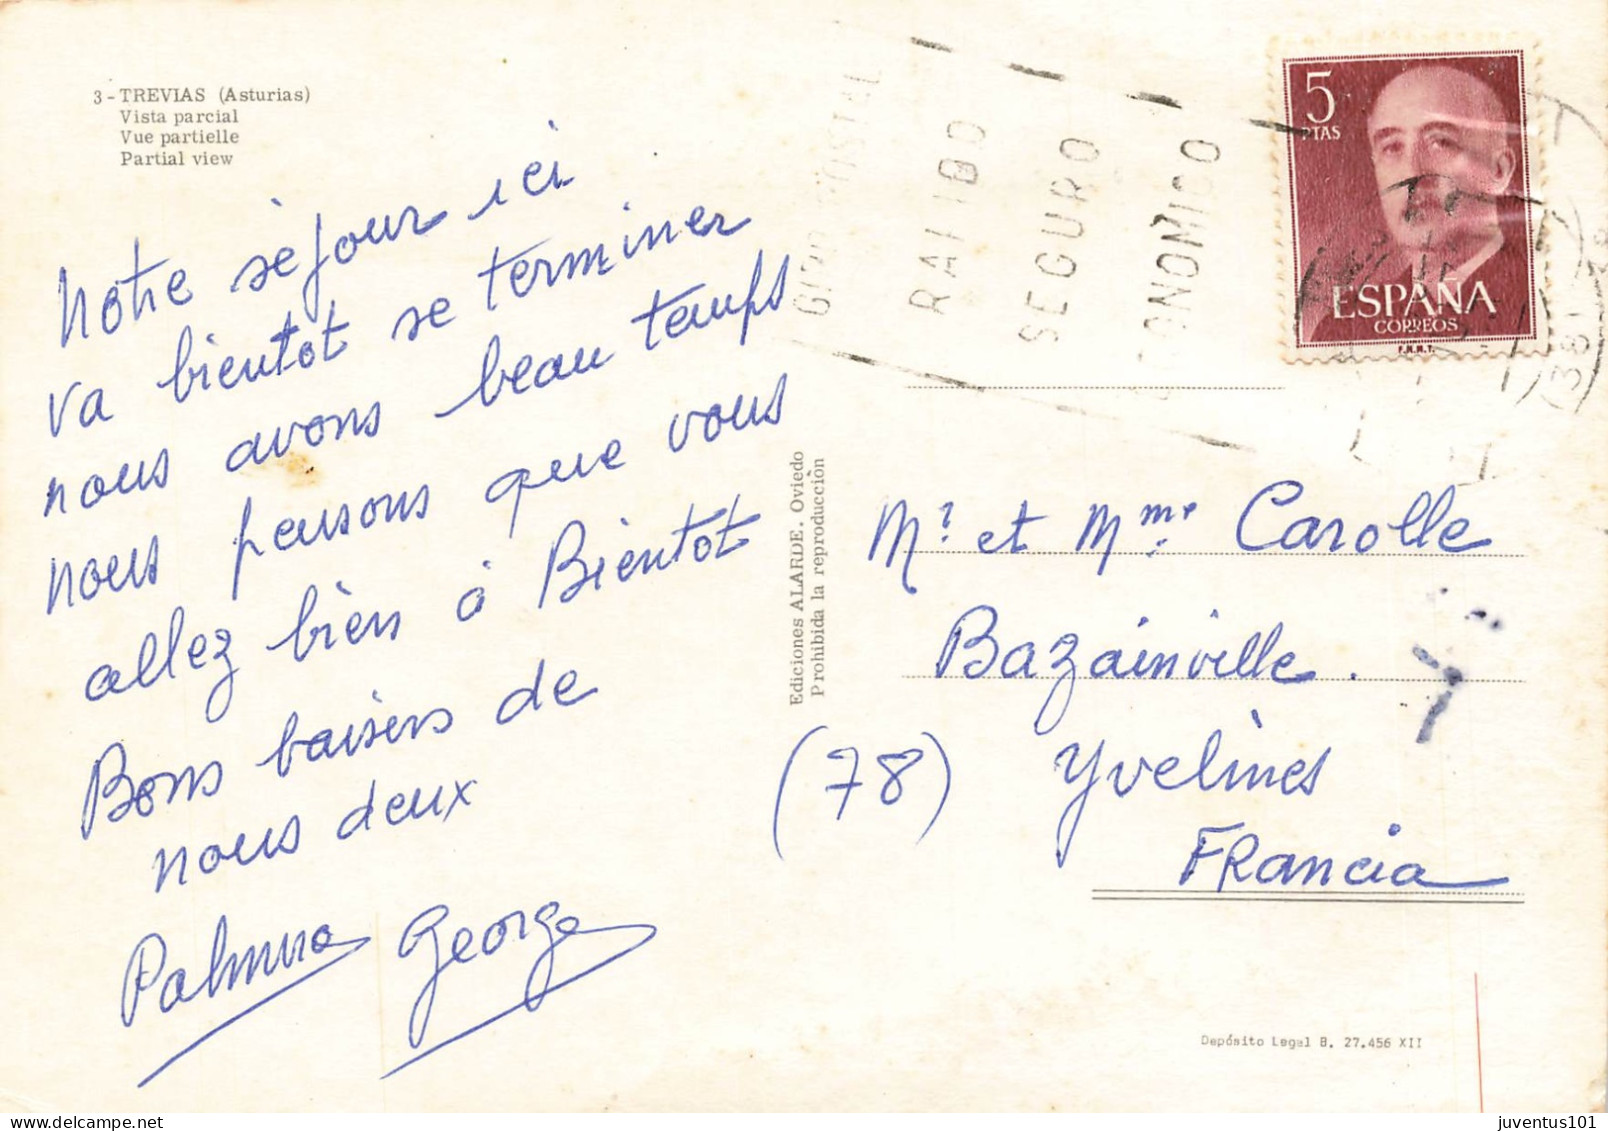 3 - TREVIAS (Asturias)
Vista parcial
Vue partielle
Partial view
Notre séjour ici
va bientot se terminer
nous avons beau temps
nous pensons que vous
allez bien à Bientot
Bons baisers de
nous deux
Palmira George
Ediciones ALARDE. Oviedo
Prohibida la reproducciòn
GIRO POSTAL
RAPIDO
SEGURO
ECONOMICO
5
PTAS
ESPAÑA
CORREOS
F.N.M.T.
Mr et Mme Carolle
Bazainville.
(78) Yvelines
FRancia
Depósito Legal B. 27.456 XII
juventus101